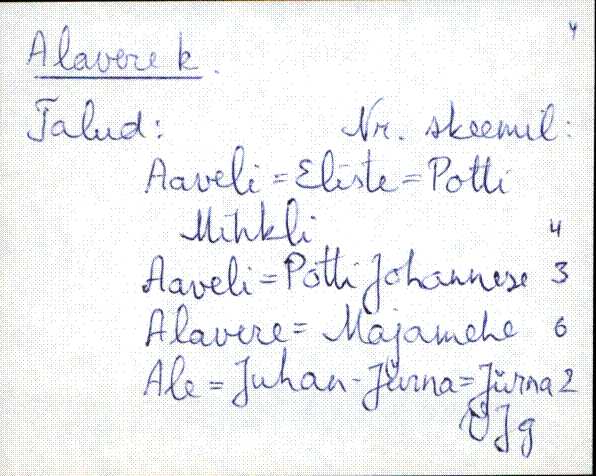 4
Alavere k.
Talud: Nr. skeemil:
Aaveli = Eliste = Potti
Mihkli 4
Aaveli = Potti Johannese 3
Alavere = Majamehe 6
Ale = Juhan-Jürna = Jürna 2